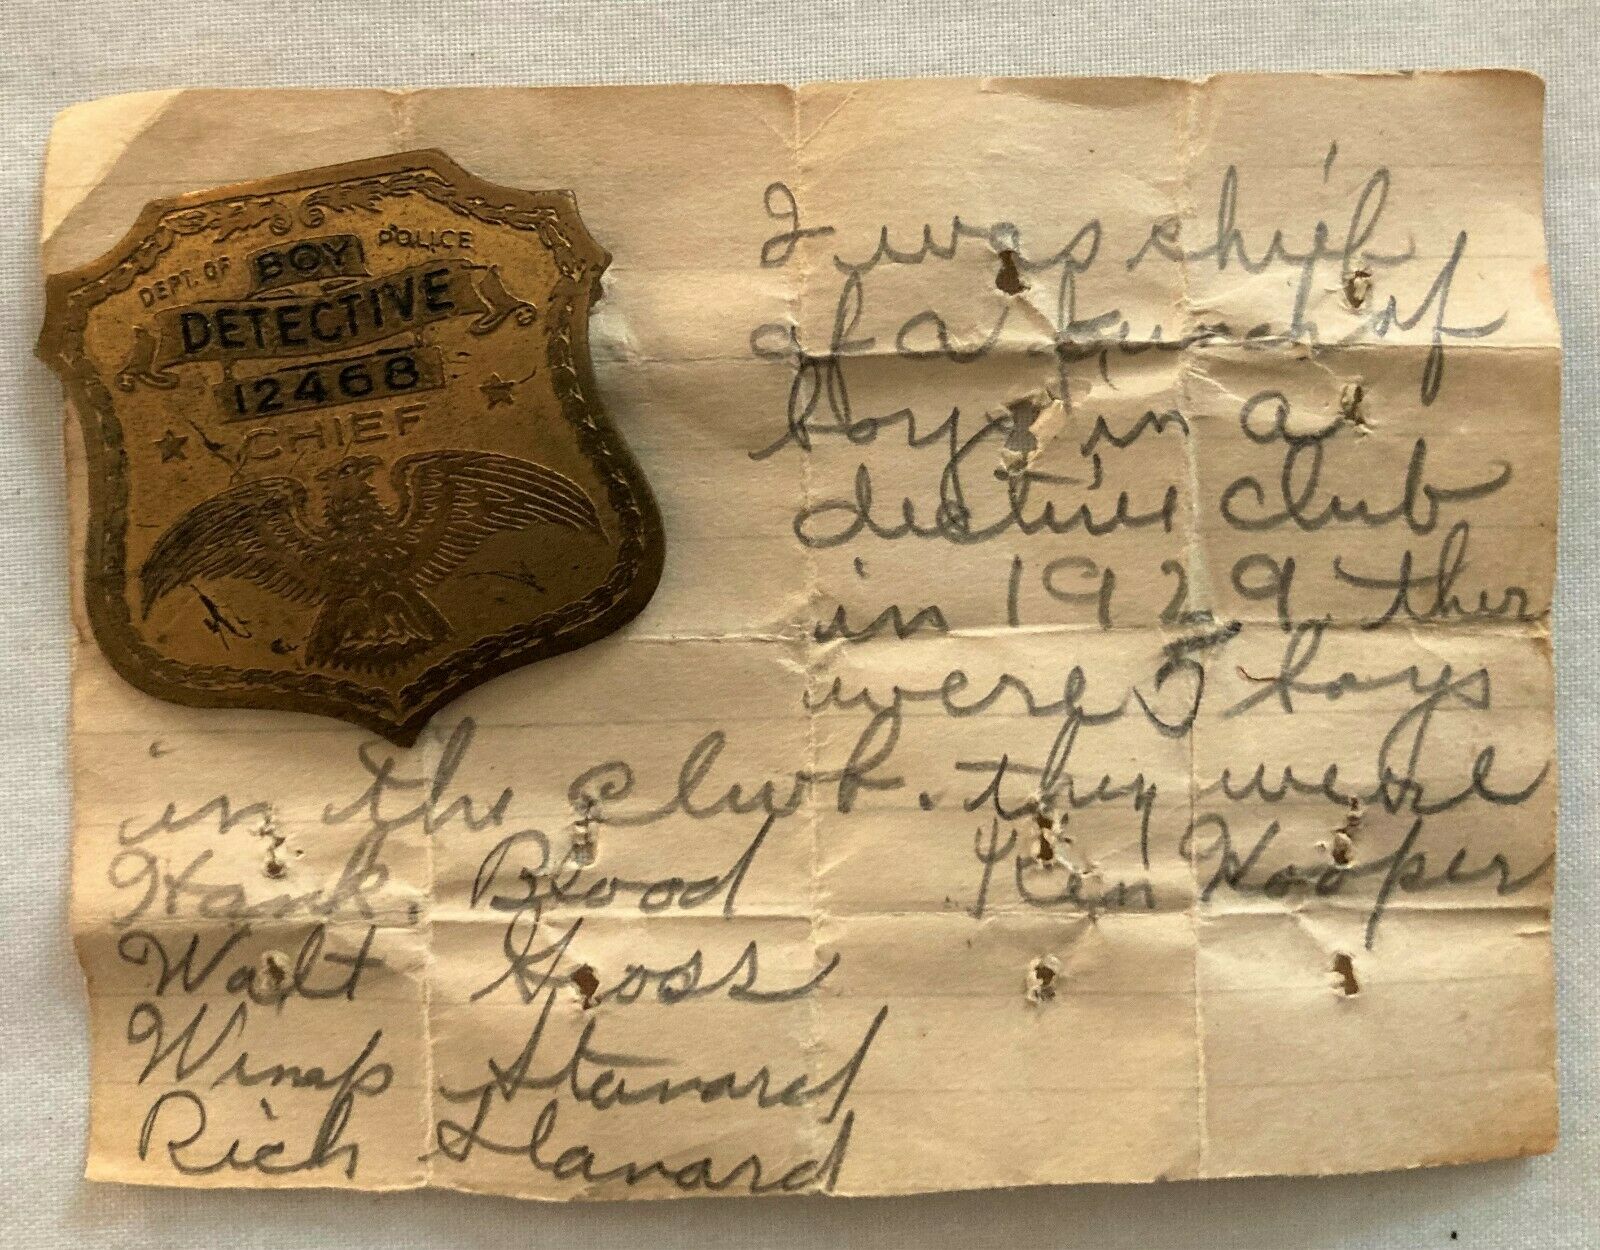 DEPT. OF BOY POLICE
DETECTIVE
12468
CHIEF
I was chief
of a bunch of
boys in a
dective club
in 1929. ther
were 5 boys
in the club. they were
Hank. Blood Ken Hooper
Walt Gross
Wimp Stanard
Rich Stanard